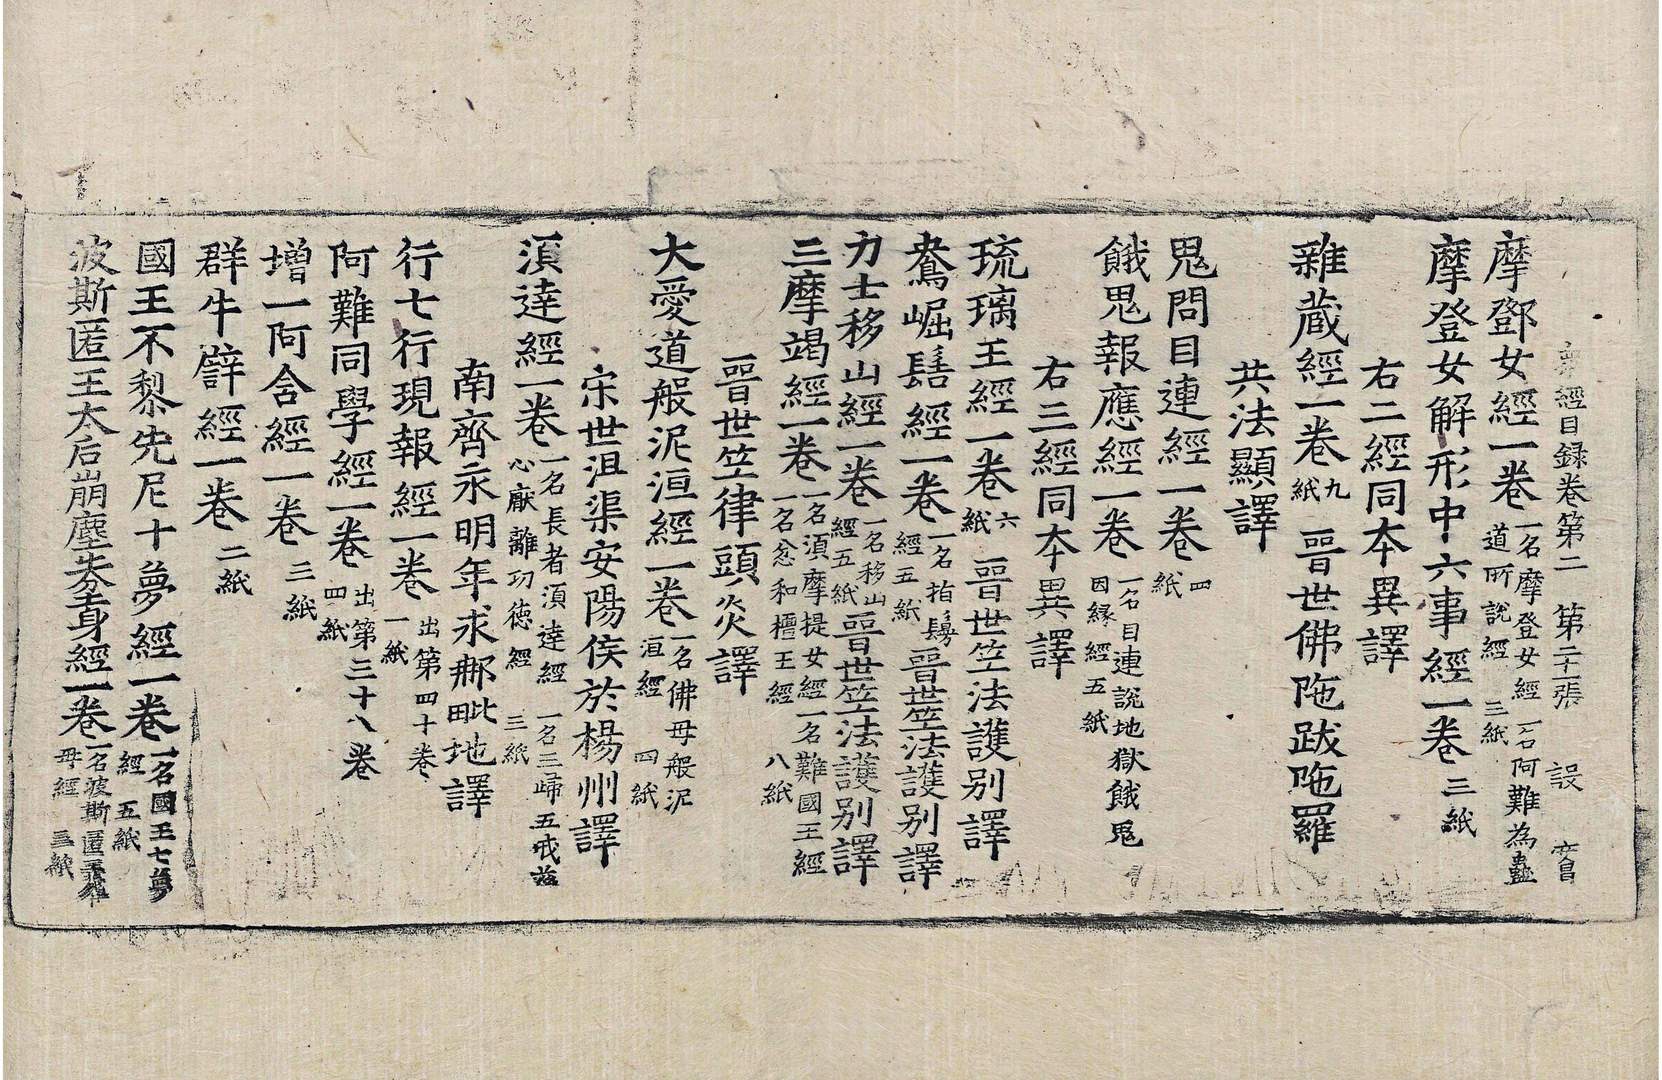 摩鄧女經一卷一名摩登女經一名阿難為蠱道所說經三紙
摩登女解形中六事經一卷三紙
右二經同本異譯
雜藏經一卷九紙晉世佛陁跋陁羅
共法顯譯
鬼問目連經一卷四紙
餓鬼報應經一卷一名目連說地獄餓鬼因緣經五紙
右三經同本異譯
琉璃王經一卷六紙晉世竺法護別譯
鴦崛髻經一卷一名指鬘經五紙晉世竺法護別譯
力士移山經一卷一名移山經五紙晉世竺法護別譯
三摩竭經一卷一名須摩提女經一名難國王經一名忿和檀王經八紙
晉世竺律頭炎譯
大愛道般泥洹經一卷一名佛母般泥洹經四紙
宋世沮渠安陽侯於楊州譯
湏達經一卷一名長者湏達經一名三歸五戒慈心厭離功德經三紙
南齊永明年求那毗地譯
行七行現報經一卷出第四十卷一紙
阿難同學經一卷出第三十八卷四紙
增一阿含經一卷三紙
群牛譬經一卷二紙
國王不黎先尼十夢經一卷一名國王七夢經五紙
波斯匿王太后崩塵坌身經一卷一名波斯匿王母經三紙
經目錄卷第二 第二十二張 設